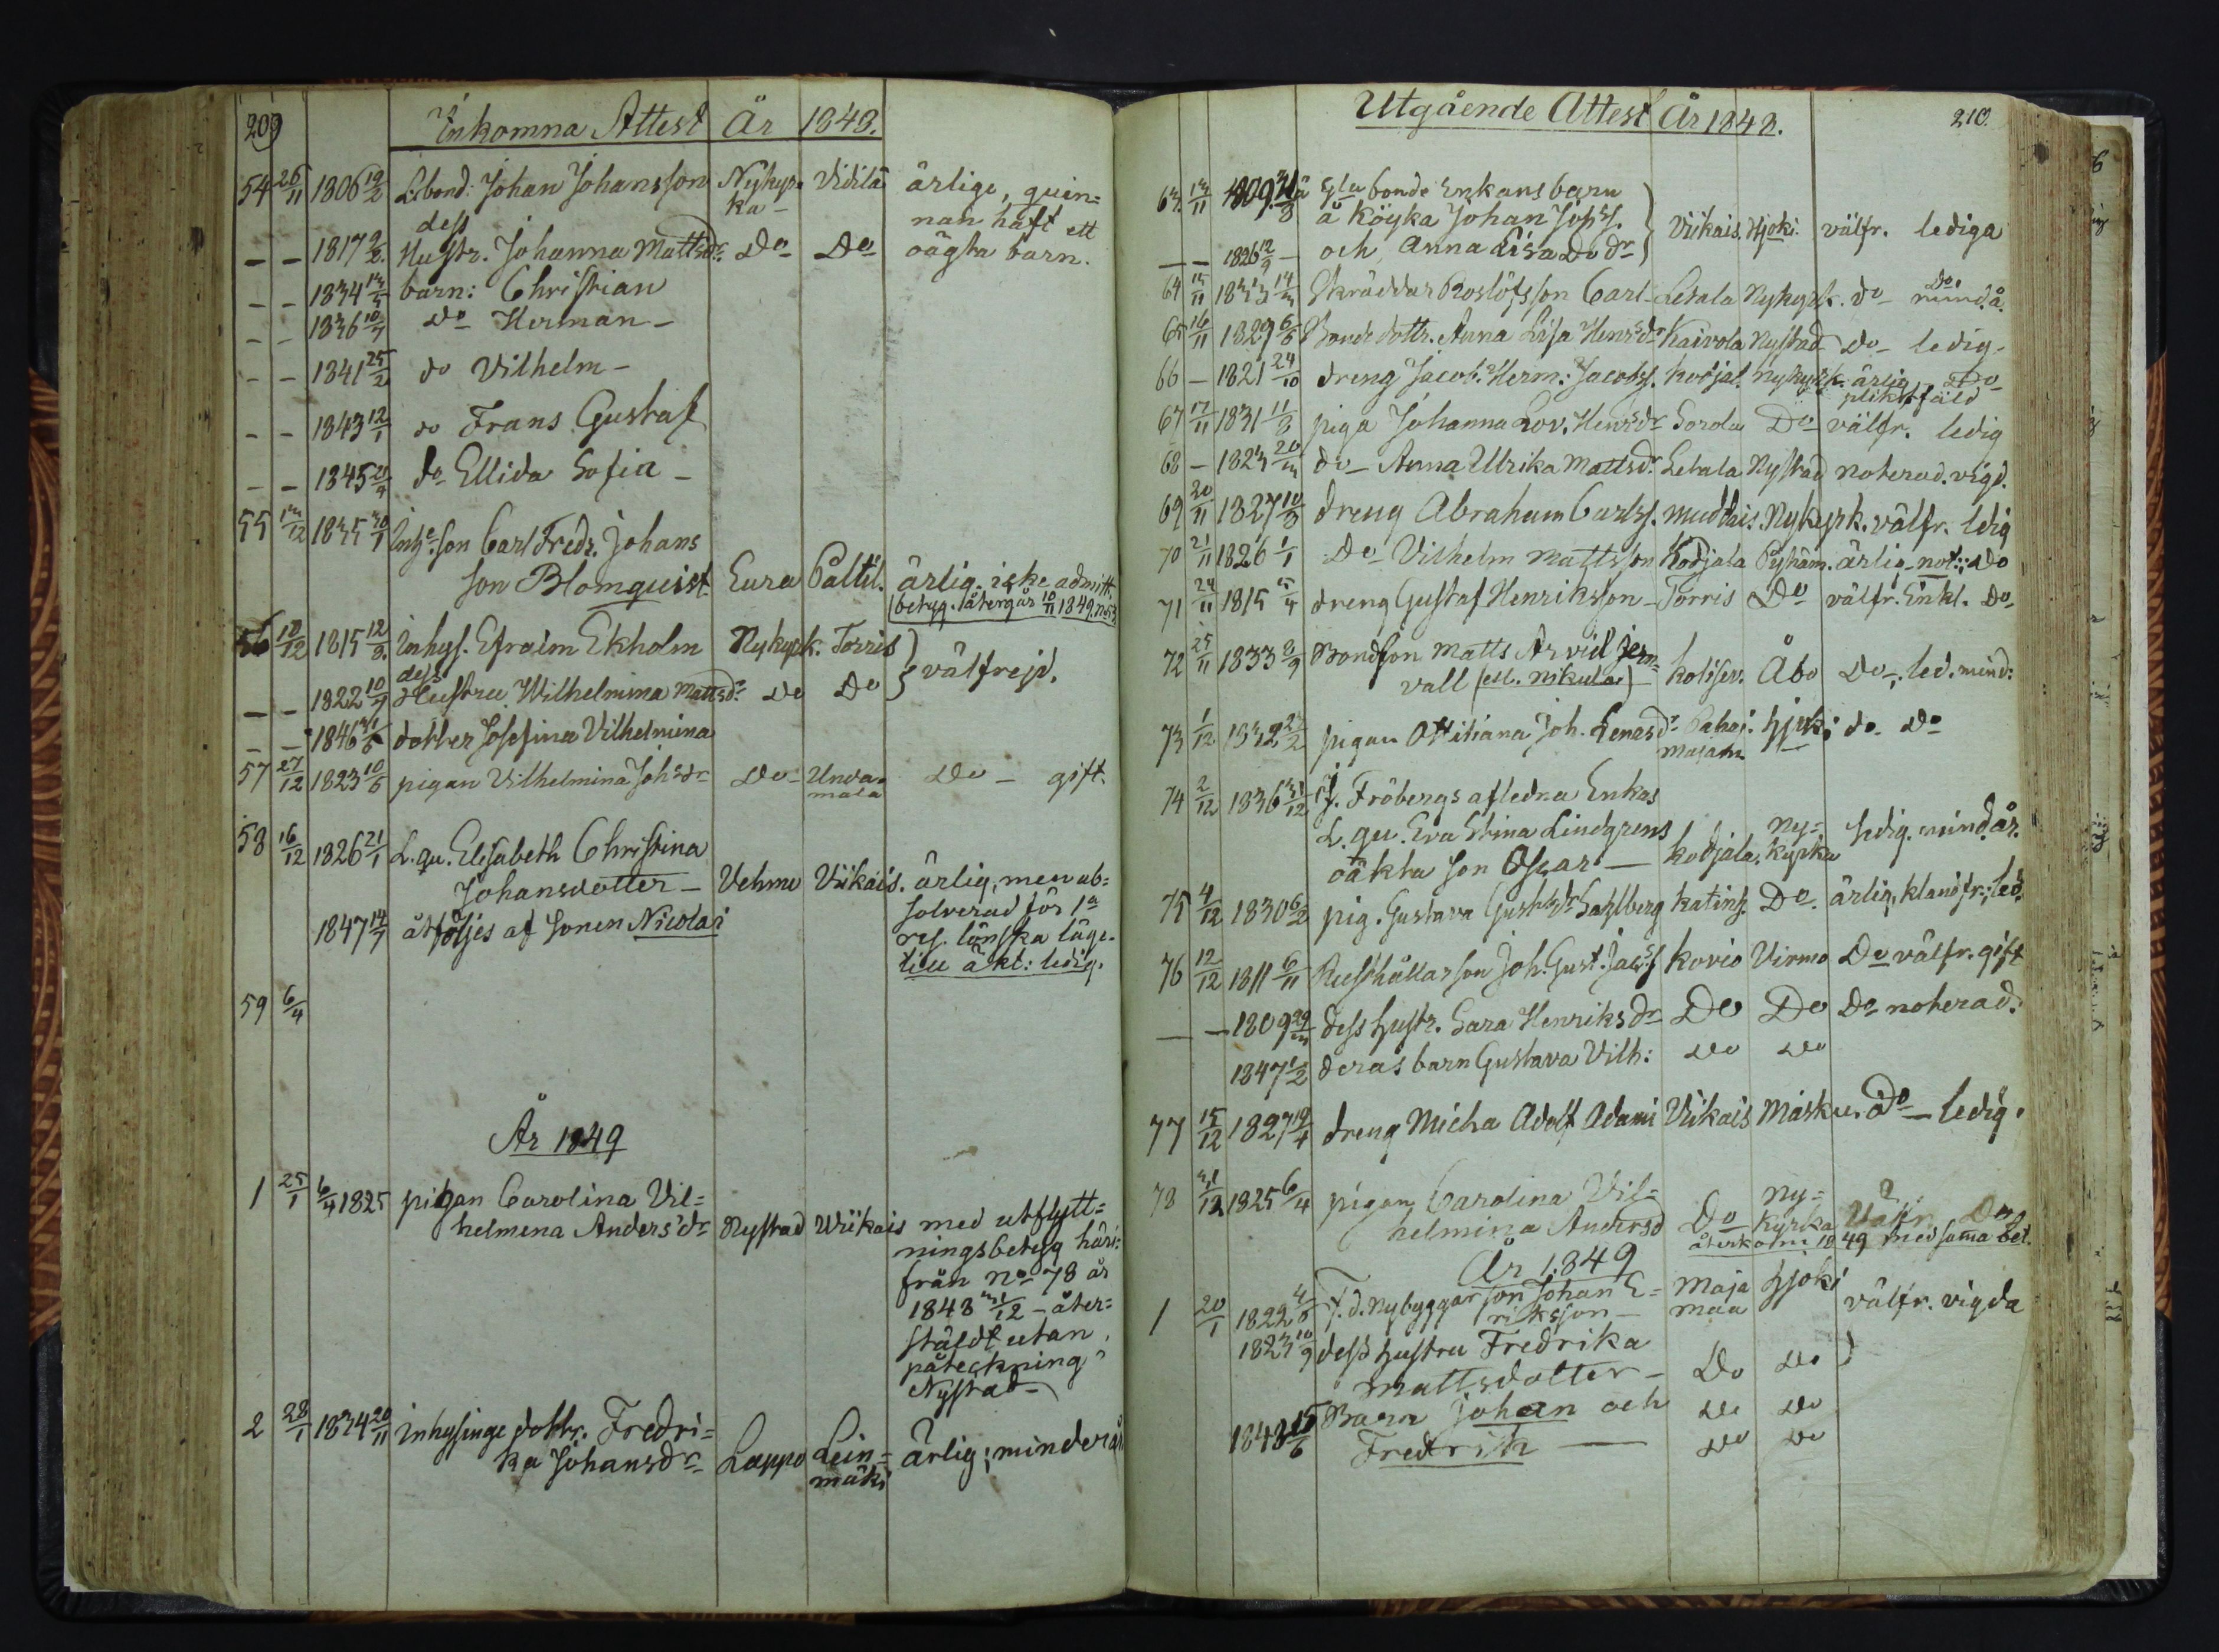 209
Inkomna Attest År 1848.
54 26/11 1806 19/2 L.bond: Johan Johansson Nykyr- Vidilä ärlige, quin=
dess ka- nan haft ett
– – 1817 9/6. Hustr. Johanna Mattsdr. Do Do oägta barn.
– – 1834 barn: Christian
– – 1836 10/7 do Herman –
– – 1841 25/2 do Vilhelm –
– – 1843 12/1 do Frans Gustaf
– – 1845 21/9 do Ellida Sofia –
55 13/12 1835 30/1 Inhe. son Carl Fredr. Johans
son Blomquist Eura Paltil. ärlig. icke admitt.
betyg. återgår 10/11 1849
56 18/12 1815 12/8. Inhys. Efraim Ekholm Nykyrk. Torris
dess välfrejd.
– – 1822 10/7 Hustru Wilhelmina Mattsdr Do Do
– – 1846 dotter Josefina Vilhelmina
57 27/12 1823 10/6 pigan Vilhelmina Johsdr Do Unda- Do – gift.
mala
58 16/12 1826 21/1 L. qu. Elisabeth Christina
Johansdotter – Vehmo Viikais. ärlig, men ab=
solverad för 1a
1847 14/7 åtföljes af sonen Nicolai
res. lönska läge.
till äkt: ledig.
59 6/4
År 1849
1 25/1 6/4 1825 pigan Carolina Vil=
helmina Anders dr Nystad Wiikais med utflytt=
ningsbetyg häri=
från No 78 år
1848 31/12 – åter=
stäldt utan
påteckning
Nystad –
2 28/1 1834 20/11 Inhysinge dottr. Fredri=
ka Johansdr Lappo Lein= ärlig; minderår
mäki
Utgående Attest År 1848. 210.
63. 13/11 bonde Enkans barn
å Köyka Johan Johss. Viikais. Hjoki. välfr. lediga
– – 1826 12/9 – och Anna Lisa Do dr
64 15/11 1833 Skräddar Roslöfs son Carl – Letala Nykyrk. do Do. mind.å.
65 16/11 1829 6/8 Bonde dottr. Anna Lisa Henrsdr Kaivola Nystad Do – ledig –
66 – 1821 24/10 dreng Jacob. Herm: Jacobss. Kodjal. Nykyrk. ärlig Do –
pliktfäld
67 17/11 1831 11/8 piga Johanna Lov. Henrsdr Sorola Do välfr. ledig
68 – 1823 do – Anna Ulrika Mattsdr. Letala Nystad noterad. vigd.
69 20/11 1827 10/8 dreng Abraham Carlss. Muddais. Nykyrk. välfr. ledig
70 21/11 1826 1/1 Do Vilhelm Mattsson Kodjala Pyhäm. ärlig – not:; do
71 24/11 1815 dreng Gustaf Henriksson – Torris Do välfr. Enkl. Do
72 25/11 1833 8/9 Bondson Matts Arvid Jern=
vall (ell. Nikula) Koliser. Åbo Do –; led. mind:
73 1/12 1832 pigan Ottiliana Joh. Lenasdr Hjoki do Do
Majama
74 2/12 1836 31/12 f. Fröbergs afledna Enkas
L. qu. Eva Stina Lindgrens Ny=
oäkta son Oscar – Kodjala. kyrka mind.år.
75 4/12 1830 6/2 pig. Gustava Gustfsdr Sahlberg Katinh. Do. ärlig, klandfr.; led.
76 12/12 1811 6/11 Rusthållarson Joh. Gust. Jacss Kovio Virmo Do välfr. gift
– – 1809 dess hustr. Sara Henriksdr Do Do Do noterad.
1847 1/2 deras barn Gustava Vilh: Do Do
77 15/12 1827 19/4 dreng Micha Adolf Adami Viikais Masku. Do – ledig.
78 31/12 1825 6/4 pigan Carolina Vil= Ny=
helmina Andersd Do kyrka Välfr. Do
återkom 1849 med samma bet.
År 1849
1 20/1 1822 F. d. nybyggar son Johan E= Maja Hjoki
riksson – maa välfr. vigda
1823 10/9 dess hustru Fredrika
Mattsdotter – Do Do
1848 15/6 Barn Johan och Do Do
Fredrik — Do Do